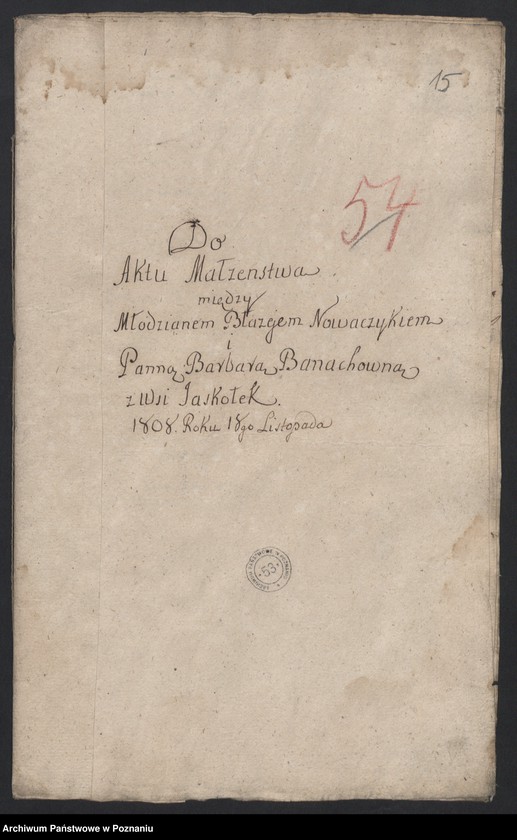 15
54
Do
Aktu Małzenstwa
między
Młodzianem Błazejem Nowaczykiem
i
Panną Barbarą Banachowną
z wsi Jaskołek.
1808. Roku 18go Listopada
ARCHIWUM PAŃSTWOWE W POZNANIU
53
Archiwum Państwowe w Poznaniu